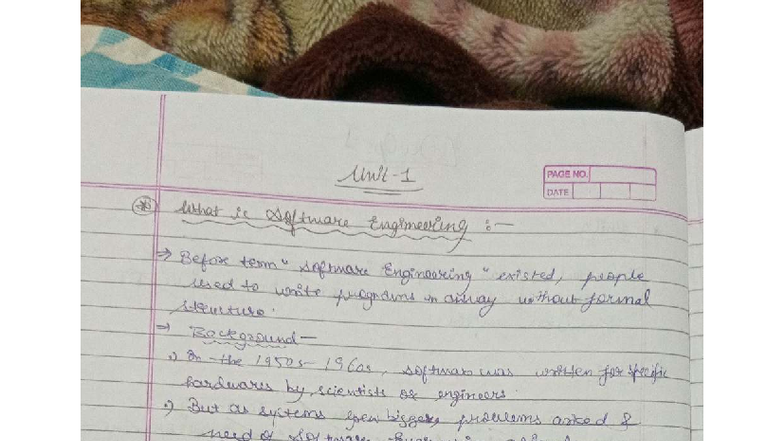 Unit-1
PAGE NO.
DATE
* What is Software Engineering :-
→ Before term "Software Engineering" existed, people
used to write programs in away without formal
structure.
→ Background -
•) In the 1950s-1960s, software was written for specific
hardwares by scientists or engineers
•) But as systems grew bigger problems arised &
need of Software